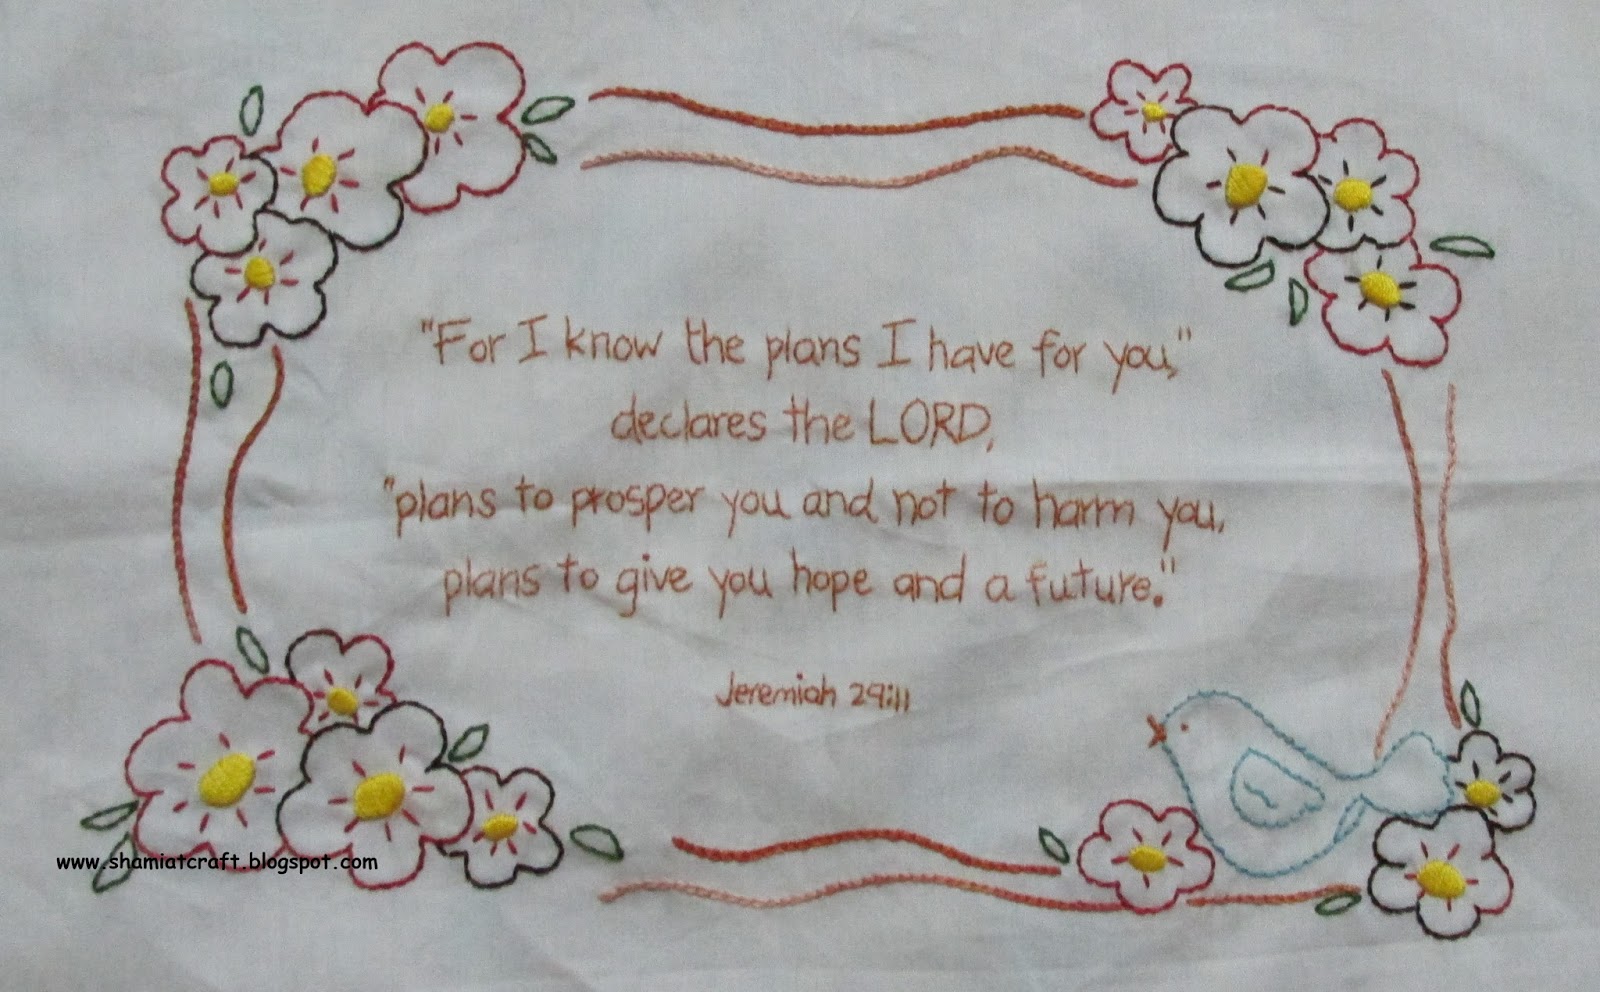 "For I know the plans I have for you,"
declares the LORD,
"plans to prosper you and not to harm you,
plans to give you hope and a future."
Jeremiah 29:11
www.shamiatcraft.blogspot.com